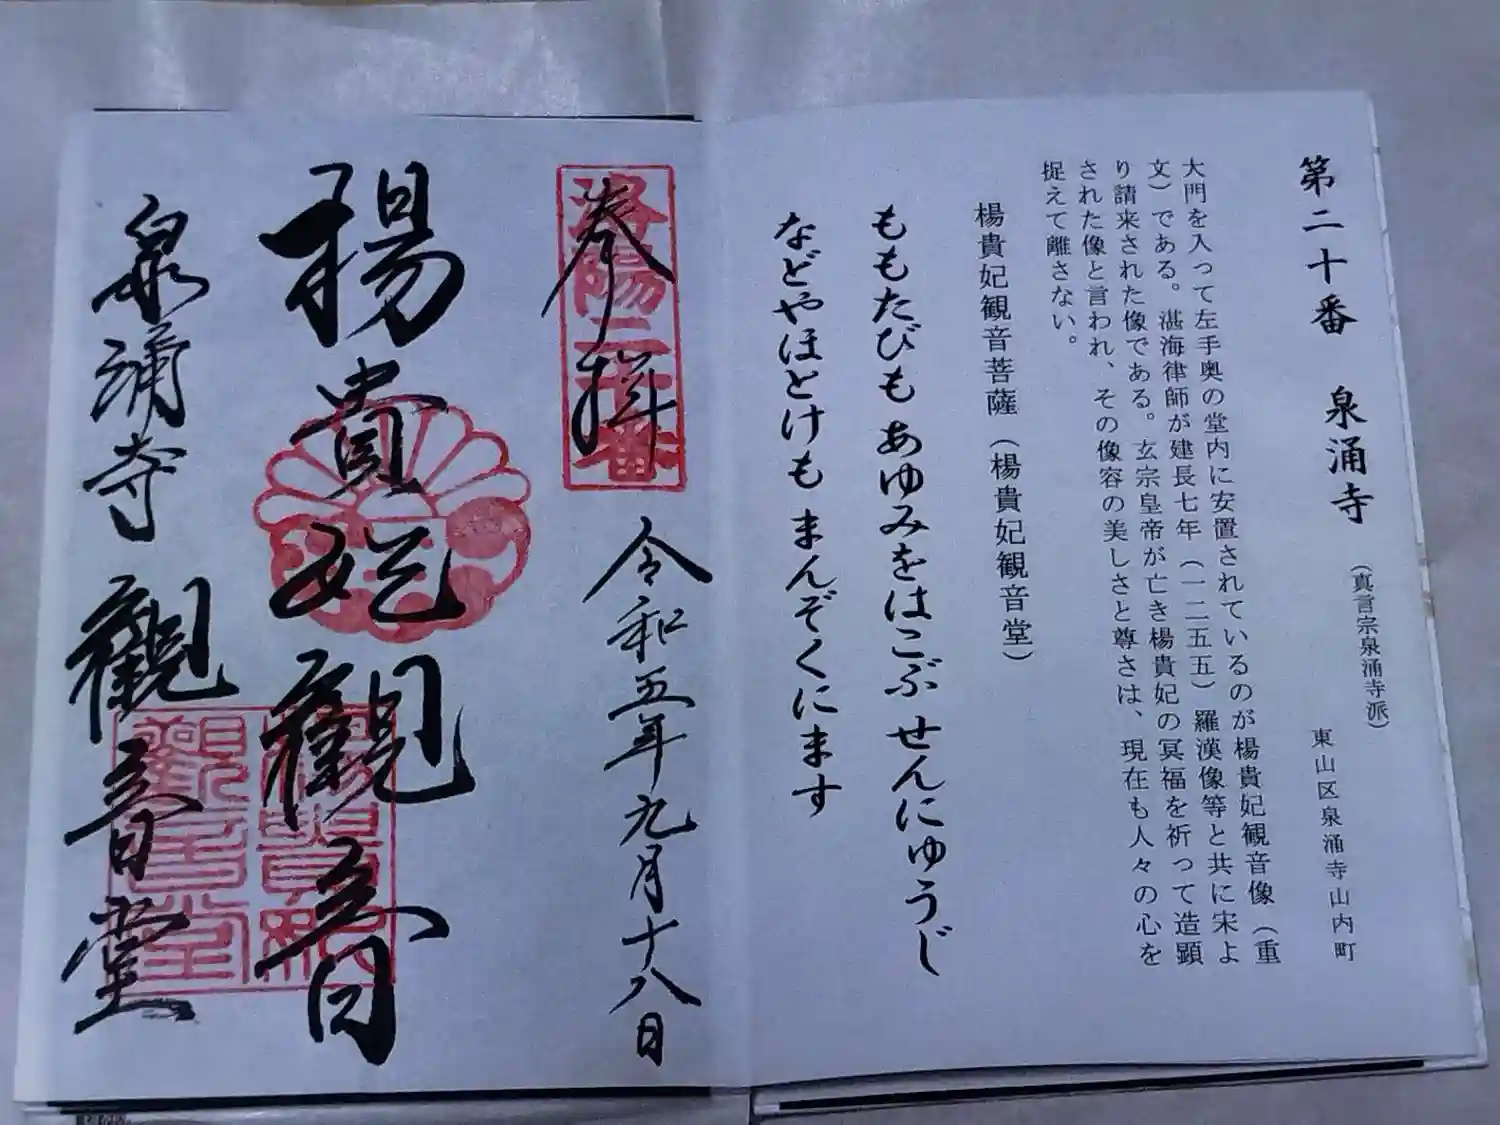 第二十番 泉涌寺（真言宗泉涌寺派）
東山区泉涌寺山内町
大門を入って左手奥の堂内に安置されているのが楊貴妃観音像（重
文）である。湛海律師が建長七年（一二五五）羅漢像等と共に宋よ
り請来された像である。玄宗皇帝が亡き楊貴妃の冥福を祈って造顕
された像と言われ、その像容の美しさと尊さは、現在も人々の心を
捉えて離さない。
楊貴妃観音菩薩（楊貴妃観音堂）
ももたびも あゆみをはこぶ せんにゅうじ
などやほとけも まんぞくにます
奉拝
洛陽二十番
令和五年九月十八日
楊貴妃觀音
楊貴妃觀音堂
泉涌寺 觀音堂